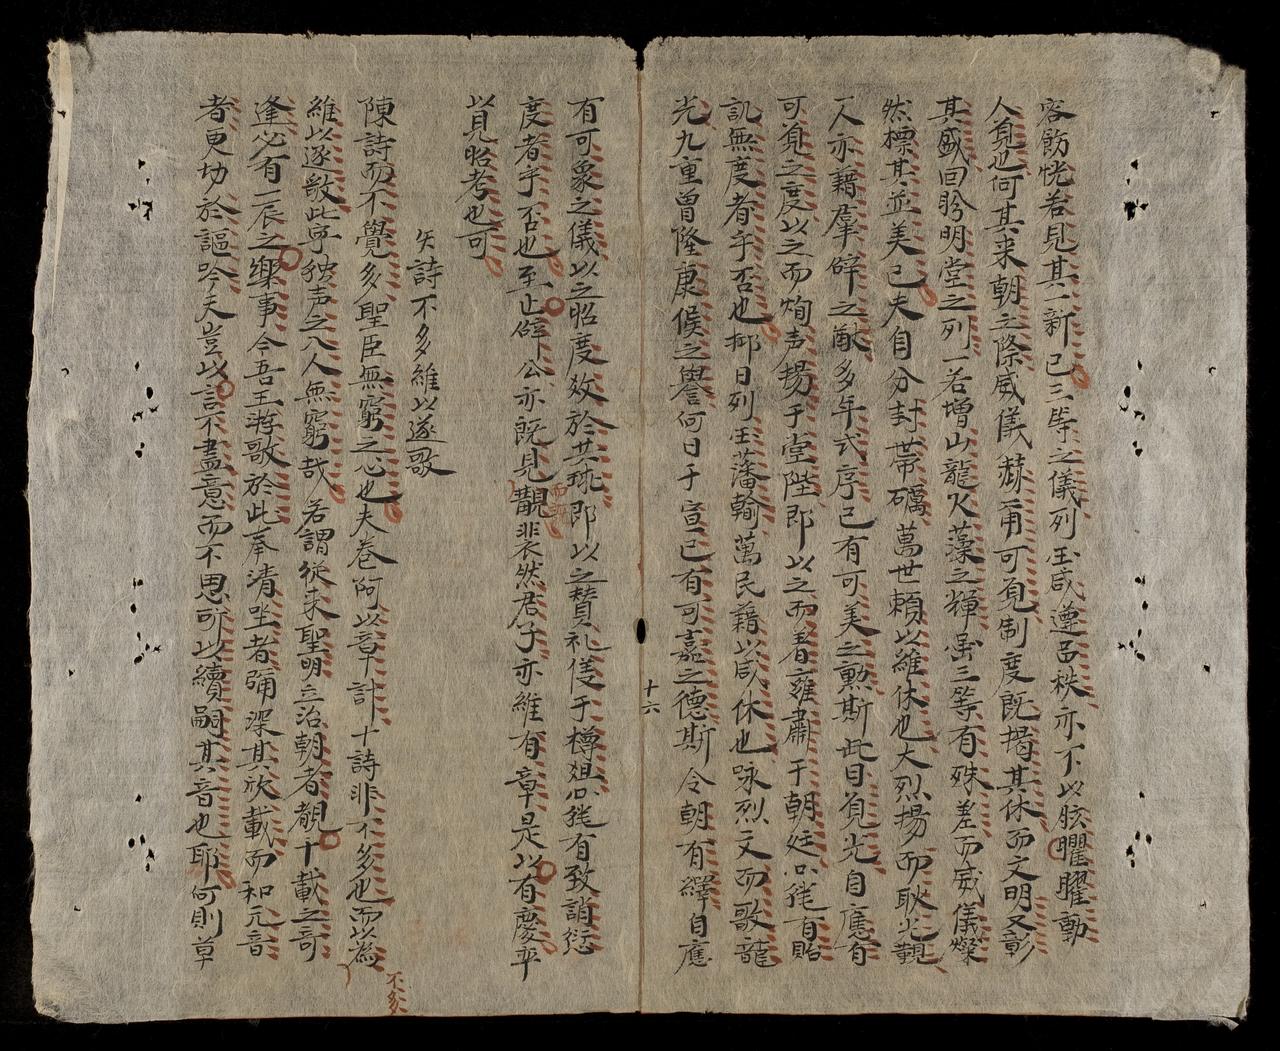 容飭恍若見其一新已三等之儀列王咸遵品秩亦下以眩曜曜動
人覓也何其来朝之際威儀菻甫可覓制度既揭其休而文明又彰
其盛回盻明堂之列一若增山龍火藻之輝虽三等有殊差而威儀燦
然標其並美已夫自分封世帶礪萬世賴以維休也大烈揚而耿光觀
人亦藉羣辟之猷多年式序已有可美之勲斯此日覓光自應有
可覓之度以之而炳声揚于堂陛即以之而着雍肅于朝廷心能有貽
訊無度者乎否也抑日列王藩翰萬民藉以咸休也咏烈文而歌龍
光九重曽隆康侯之譽何日于宣已有可嘉之德斯今朝有繹自應
十六
有可象之儀以之昭度效於共球即以之賛礼僅于樽俎心能有致誚愆
度者乎否也至止辟公亦既見觀裴然君子亦維有章是以有慶乎
以見昭考也可
矢詩不多維以遂歌
陳詩而不覺多聖臣無窮之心也夫卷阿以章計十詩非不多也而以為
不多
維以遂歌此寧独声之入人無窮哉若謂從来聖明立治朝者覩千載之奇
逢必有一辰之樂事今吾王游歌於此奉清吟者彌深其欣載而和元音
者更切於謳吟夫豈以言不盡意而不思所以續嗣其音也耶何則草